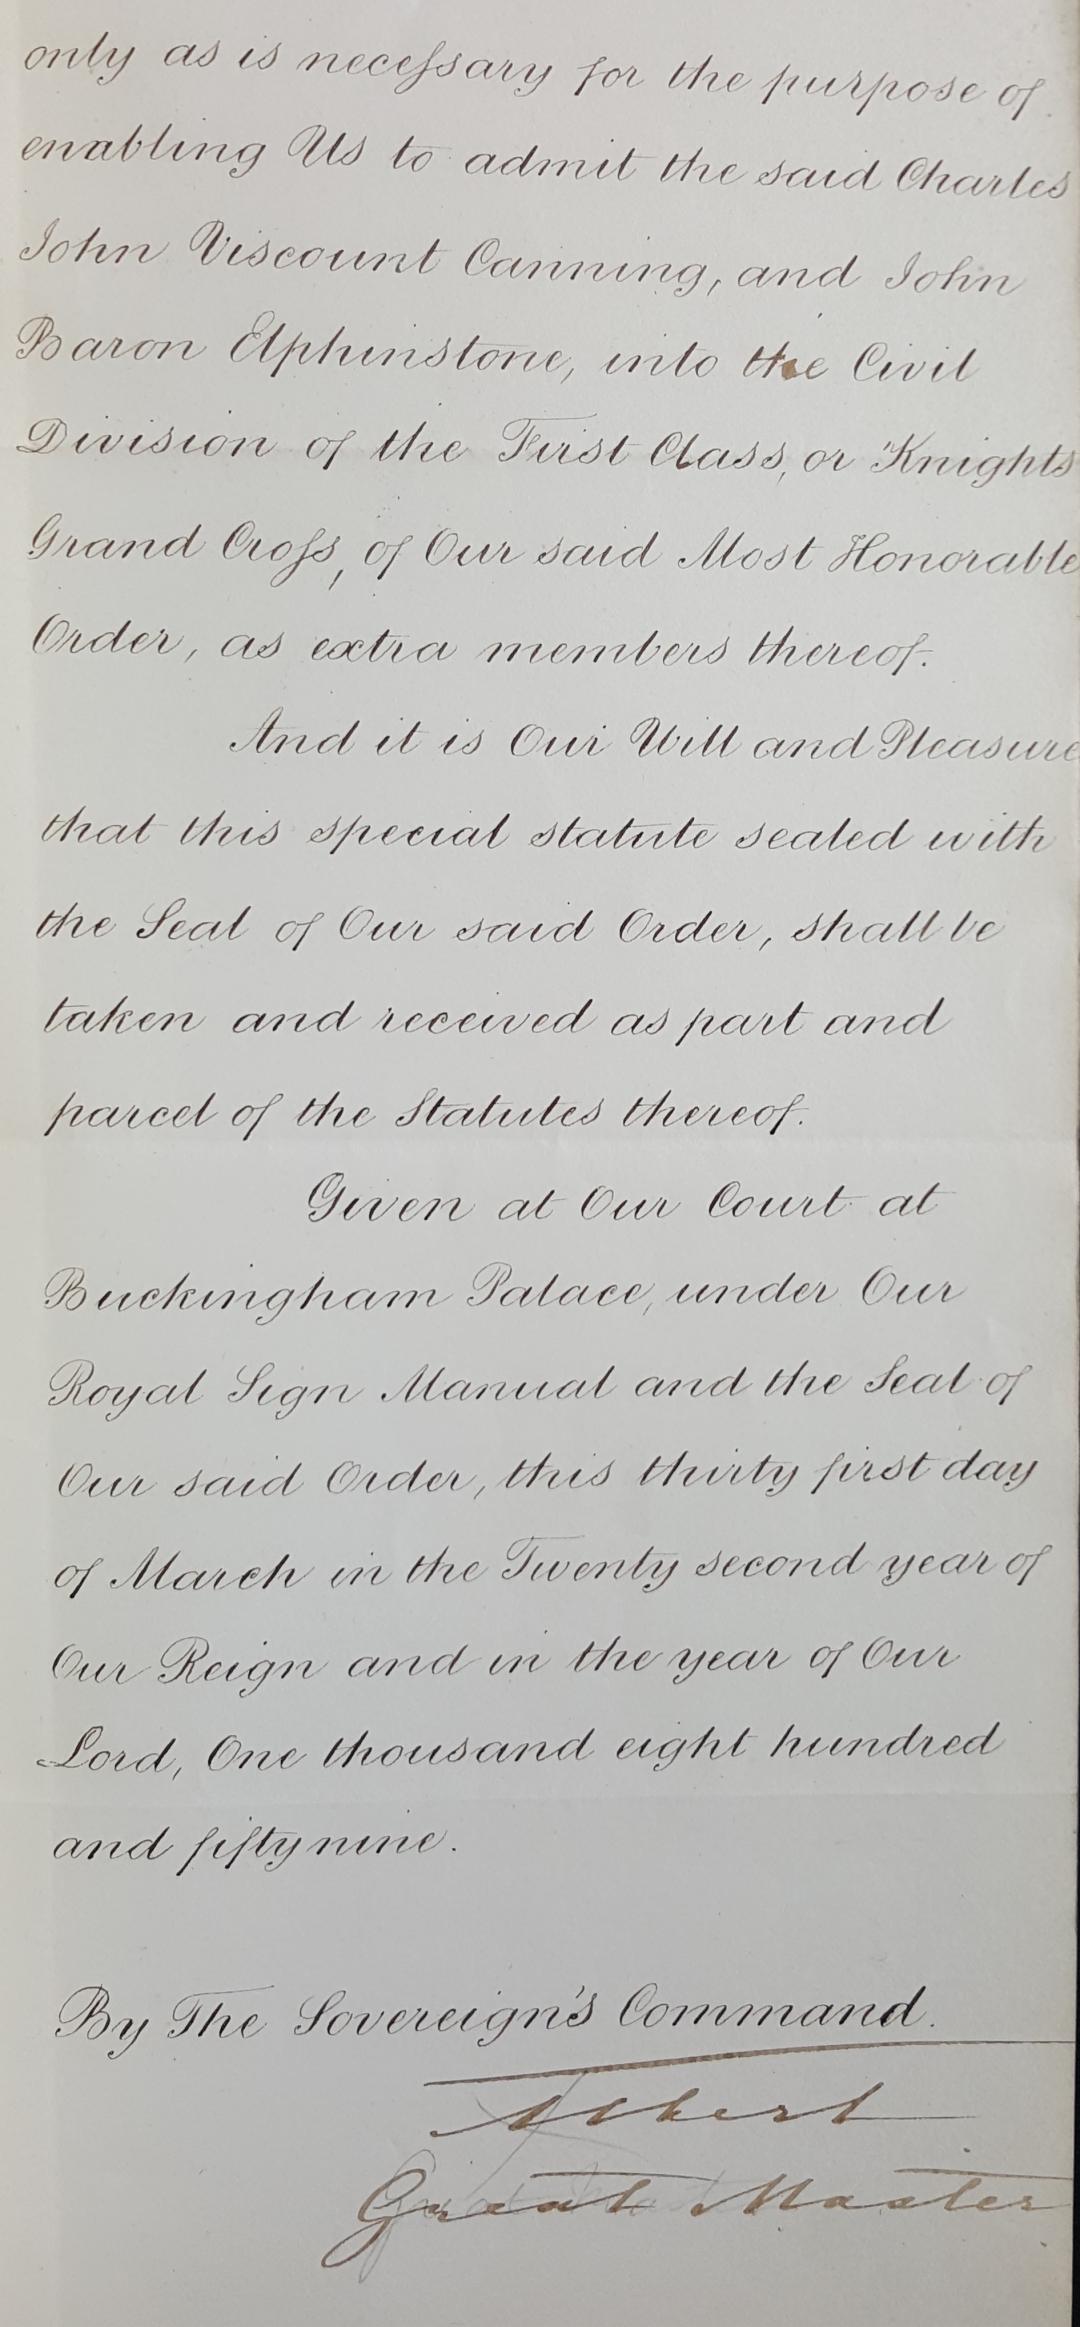 only as is neceſsary for the purpose of
enabling Us to admit the said Charles
John Viscount Canning, and John
Baron Elphinstone, into the Civil
Division of the First Class, or Knights
Grand Croſs, of Our said Most Honorable
Order, as extra members thereof.
And it is Our Will and Pleasure
that this special statute sealed with
the Seal of Our said Order, shall be
taken and received as part and
parcel of the Statutes thereof.
Given at Our Court at
Buckingham Palace, under Our
Royal Sign Manual and the Seal of
Our said Order, this thirty first day
of March in the Twenty second year of
Our Reign and in the year of Our
Lord, One thousand eight hundred
and fifty nine.
By The Sovereign's Command.
Albert
Great Master